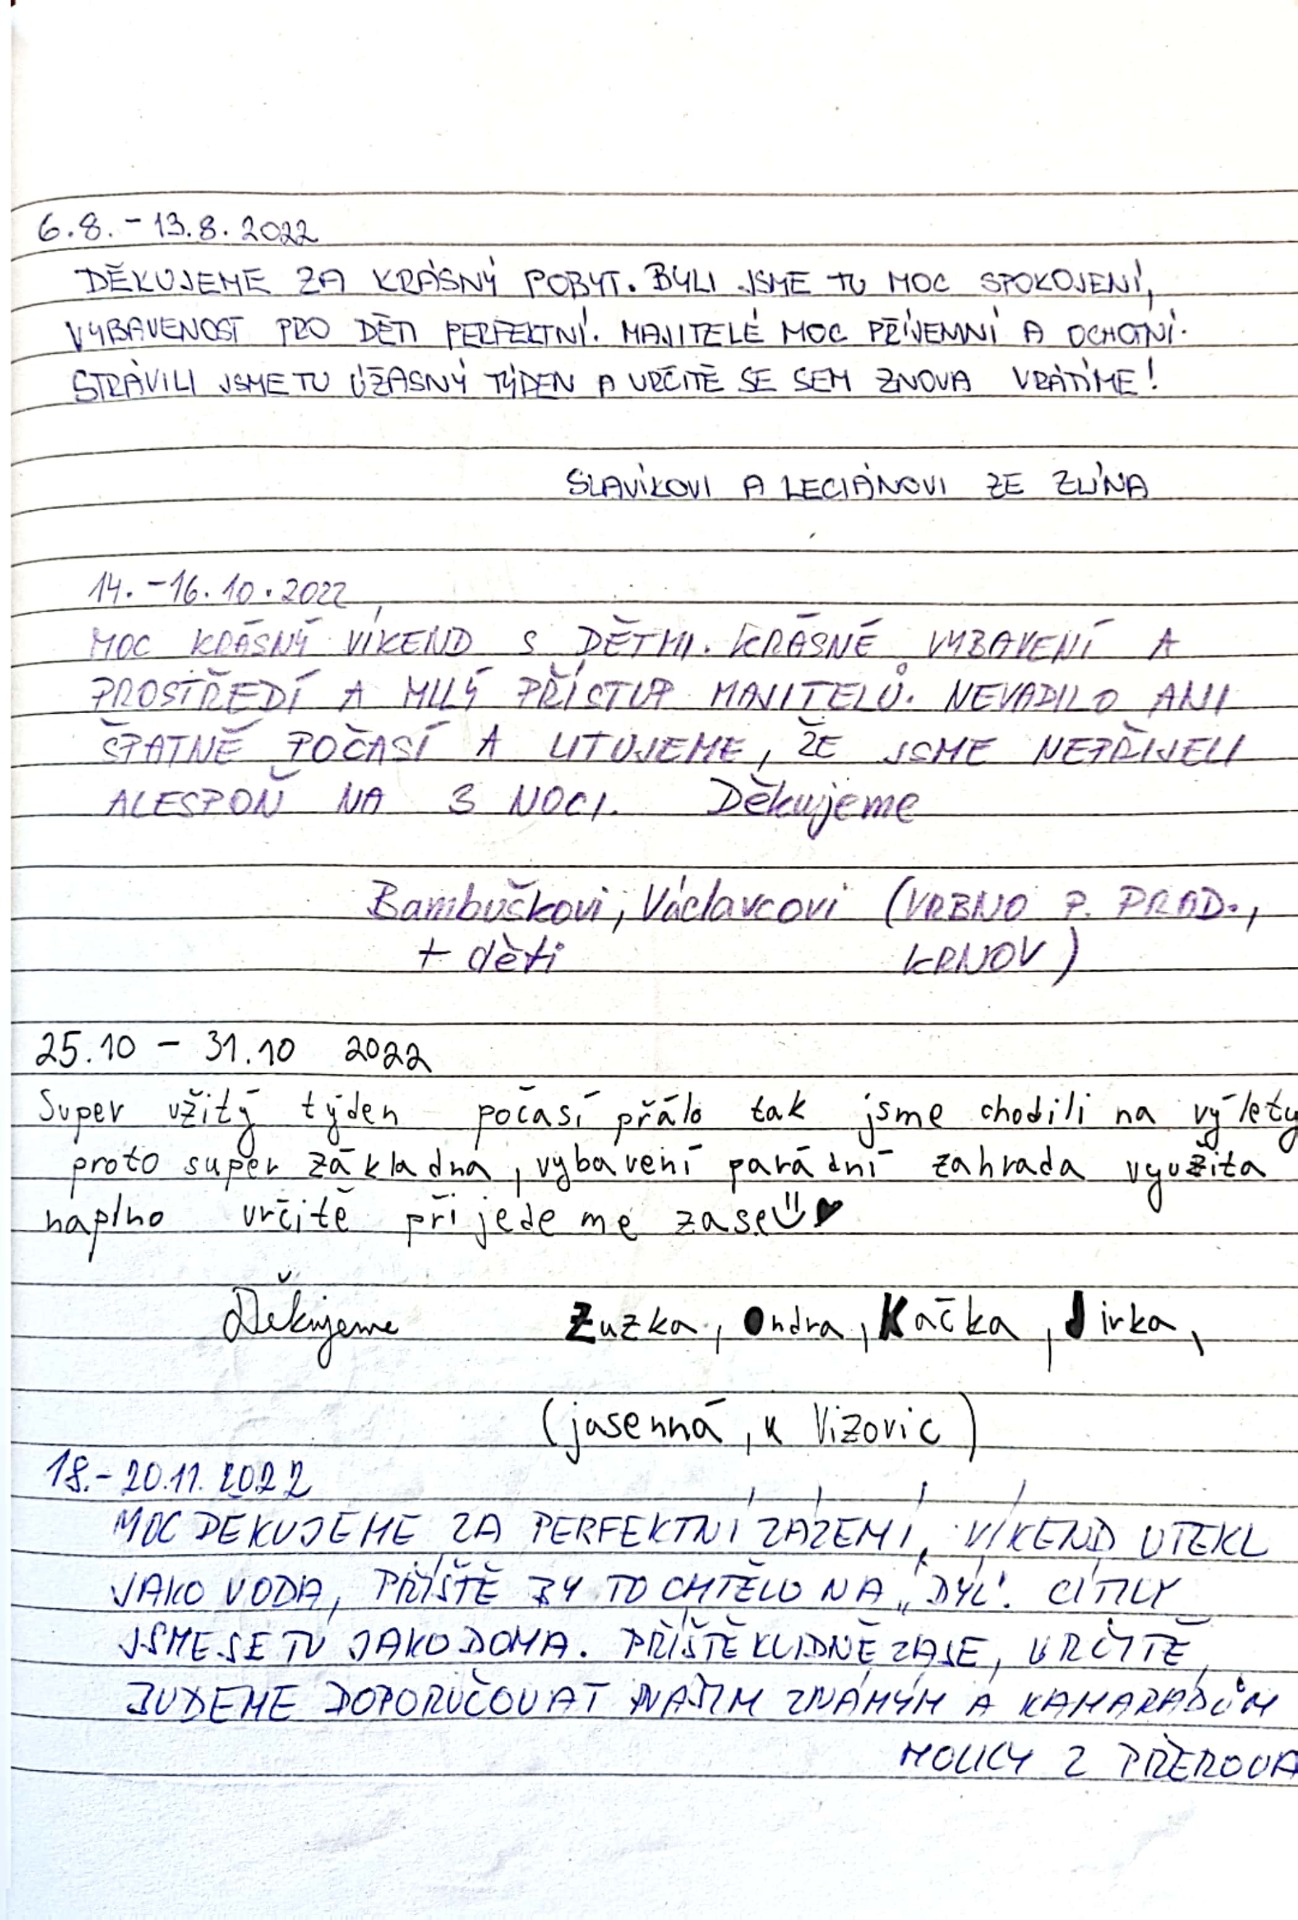 6.8. - 13.8. 2022
DĚKUJEME ZA KRÁSNÝ POBYT. BYLI JSME TU MOC SPOKOJENÍ,
VYBAVENOST PRO DĚTI PERFEKTNÍ. MAJITELÉ MOC PŘÍJEMNÍ A OCHOTNÍ.
STRÁVILI JSME TU ÚŽASNÝ TÝDEN A URČITĚ SE SEM ZNOVA VRÁTÍME!
SLAVÍKOVI A LECIÁNOVI ZE ZLÍNA
14. - 16. 10. 2022
MOC KRÁSNÝ VÍKEND S DĚTMI. KRÁSNÉ VYBAVENÍ A
PROSTŘEDÍ A MILÝ PŘÍSTUP MAJITELŮ. NEVADILO ANI
ŠPATNÉ POČASÍ A LITUJEME, ŽE JSME NEPŘIJELI
ALESPOŇ NA 3 NOCI. Děkujeme
Bambuškovi, Václavcovi (VRBNO P. PRAD.,
+ děti KRNOV)
25.10 - 31.10 2022
Super užitý týden počasí přálo tak jsme chodili na výlety
proto super základna, vybavení parádní zahrada využita
naplno určitě přijedeme zase ☺♥
Děkujeme Zuzka, Ondra, Kačka, Jirka,
(jasenná, u Vizovic)
18. - 20.11. 2022
MOC DĚKUJEME ZA PERFEKTNÍ ZÁZEMÍ, VÍKEND UTEKL
JAKO VODA, PŘÍŠTĚ BY TO CHTĚLO NA „DÝL". CÍTILY
JSME SE TU JAKO DOMA. PŘÍŠTĚ KLIDNĚ ZASE, URČITĚ
BUDEME DOPORUČOVAT NAŠIM ZNÁMÝM A KAMARÁDŮM
Z PŘEROVA